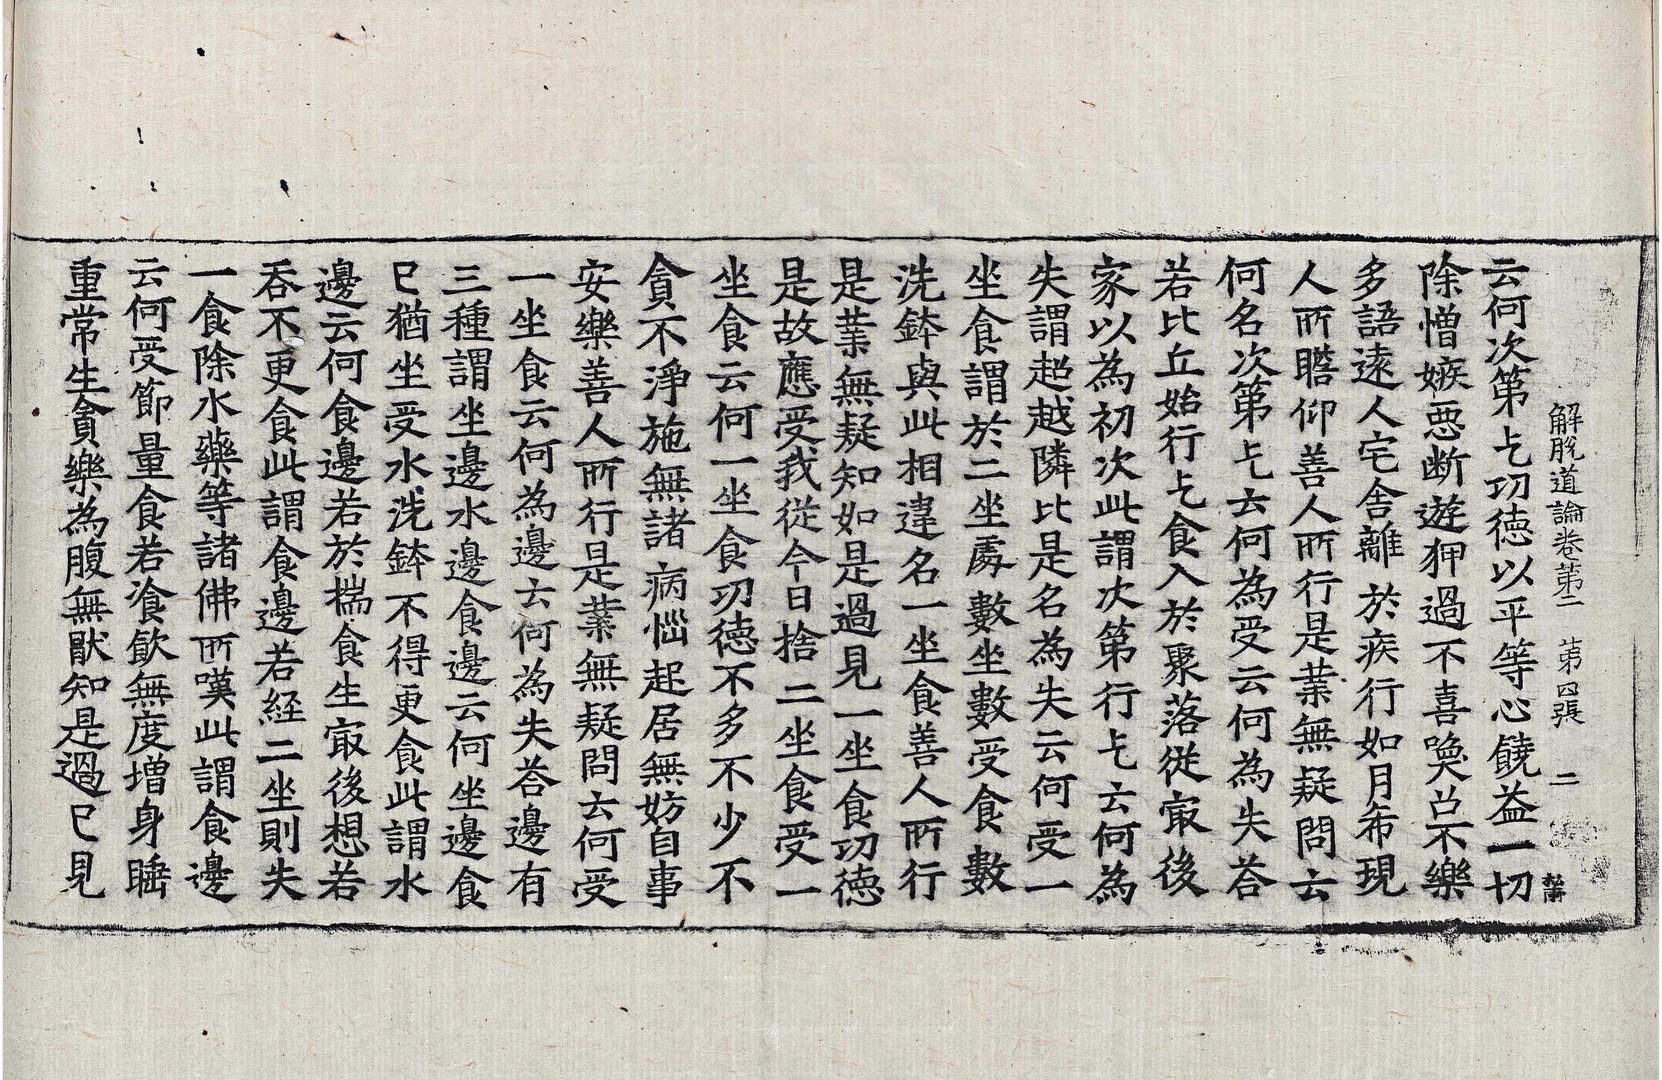 解脫道論卷第二 第四張 二
云何次第乞功徳以平等心饒益一切
除憎嫉惡断遊狎過不喜喚召不樂
多語遠人宅舎離於疾行如月希現
人所瞻仰善人所行是業無疑問云
何名次第乞云何為受云何為失荅
若比丘始行乞食入於聚落從㝡後
家以為初次此謂次第行乞云何為
失謂超越隣比是名為失云何受一
坐食謂於二坐處數坐數受食數
洗鉢與此相違名一坐食善人所行
是業無疑知如是過見一坐食功徳
是故應受我從今日捨二坐食受一
坐食云何一坐食功徳不多不少不
貪不淨施無諸病惱起居無妨自事
安樂善人所行是業無疑問云何受
一坐食云何為邊云何為失荅邊有
三種謂坐邊水邊食邊云何坐邊食
已猶坐受水洗鉢不得更食此謂水
邊云何食邊若於揣食生㝡後想若
吞不更食此謂食邊若経二坐則失
一食除水藥等諸佛所嘆此謂食邊
云何受節量食若飡飲無度増身睡
重常生貪樂為腹無猒知是過已見